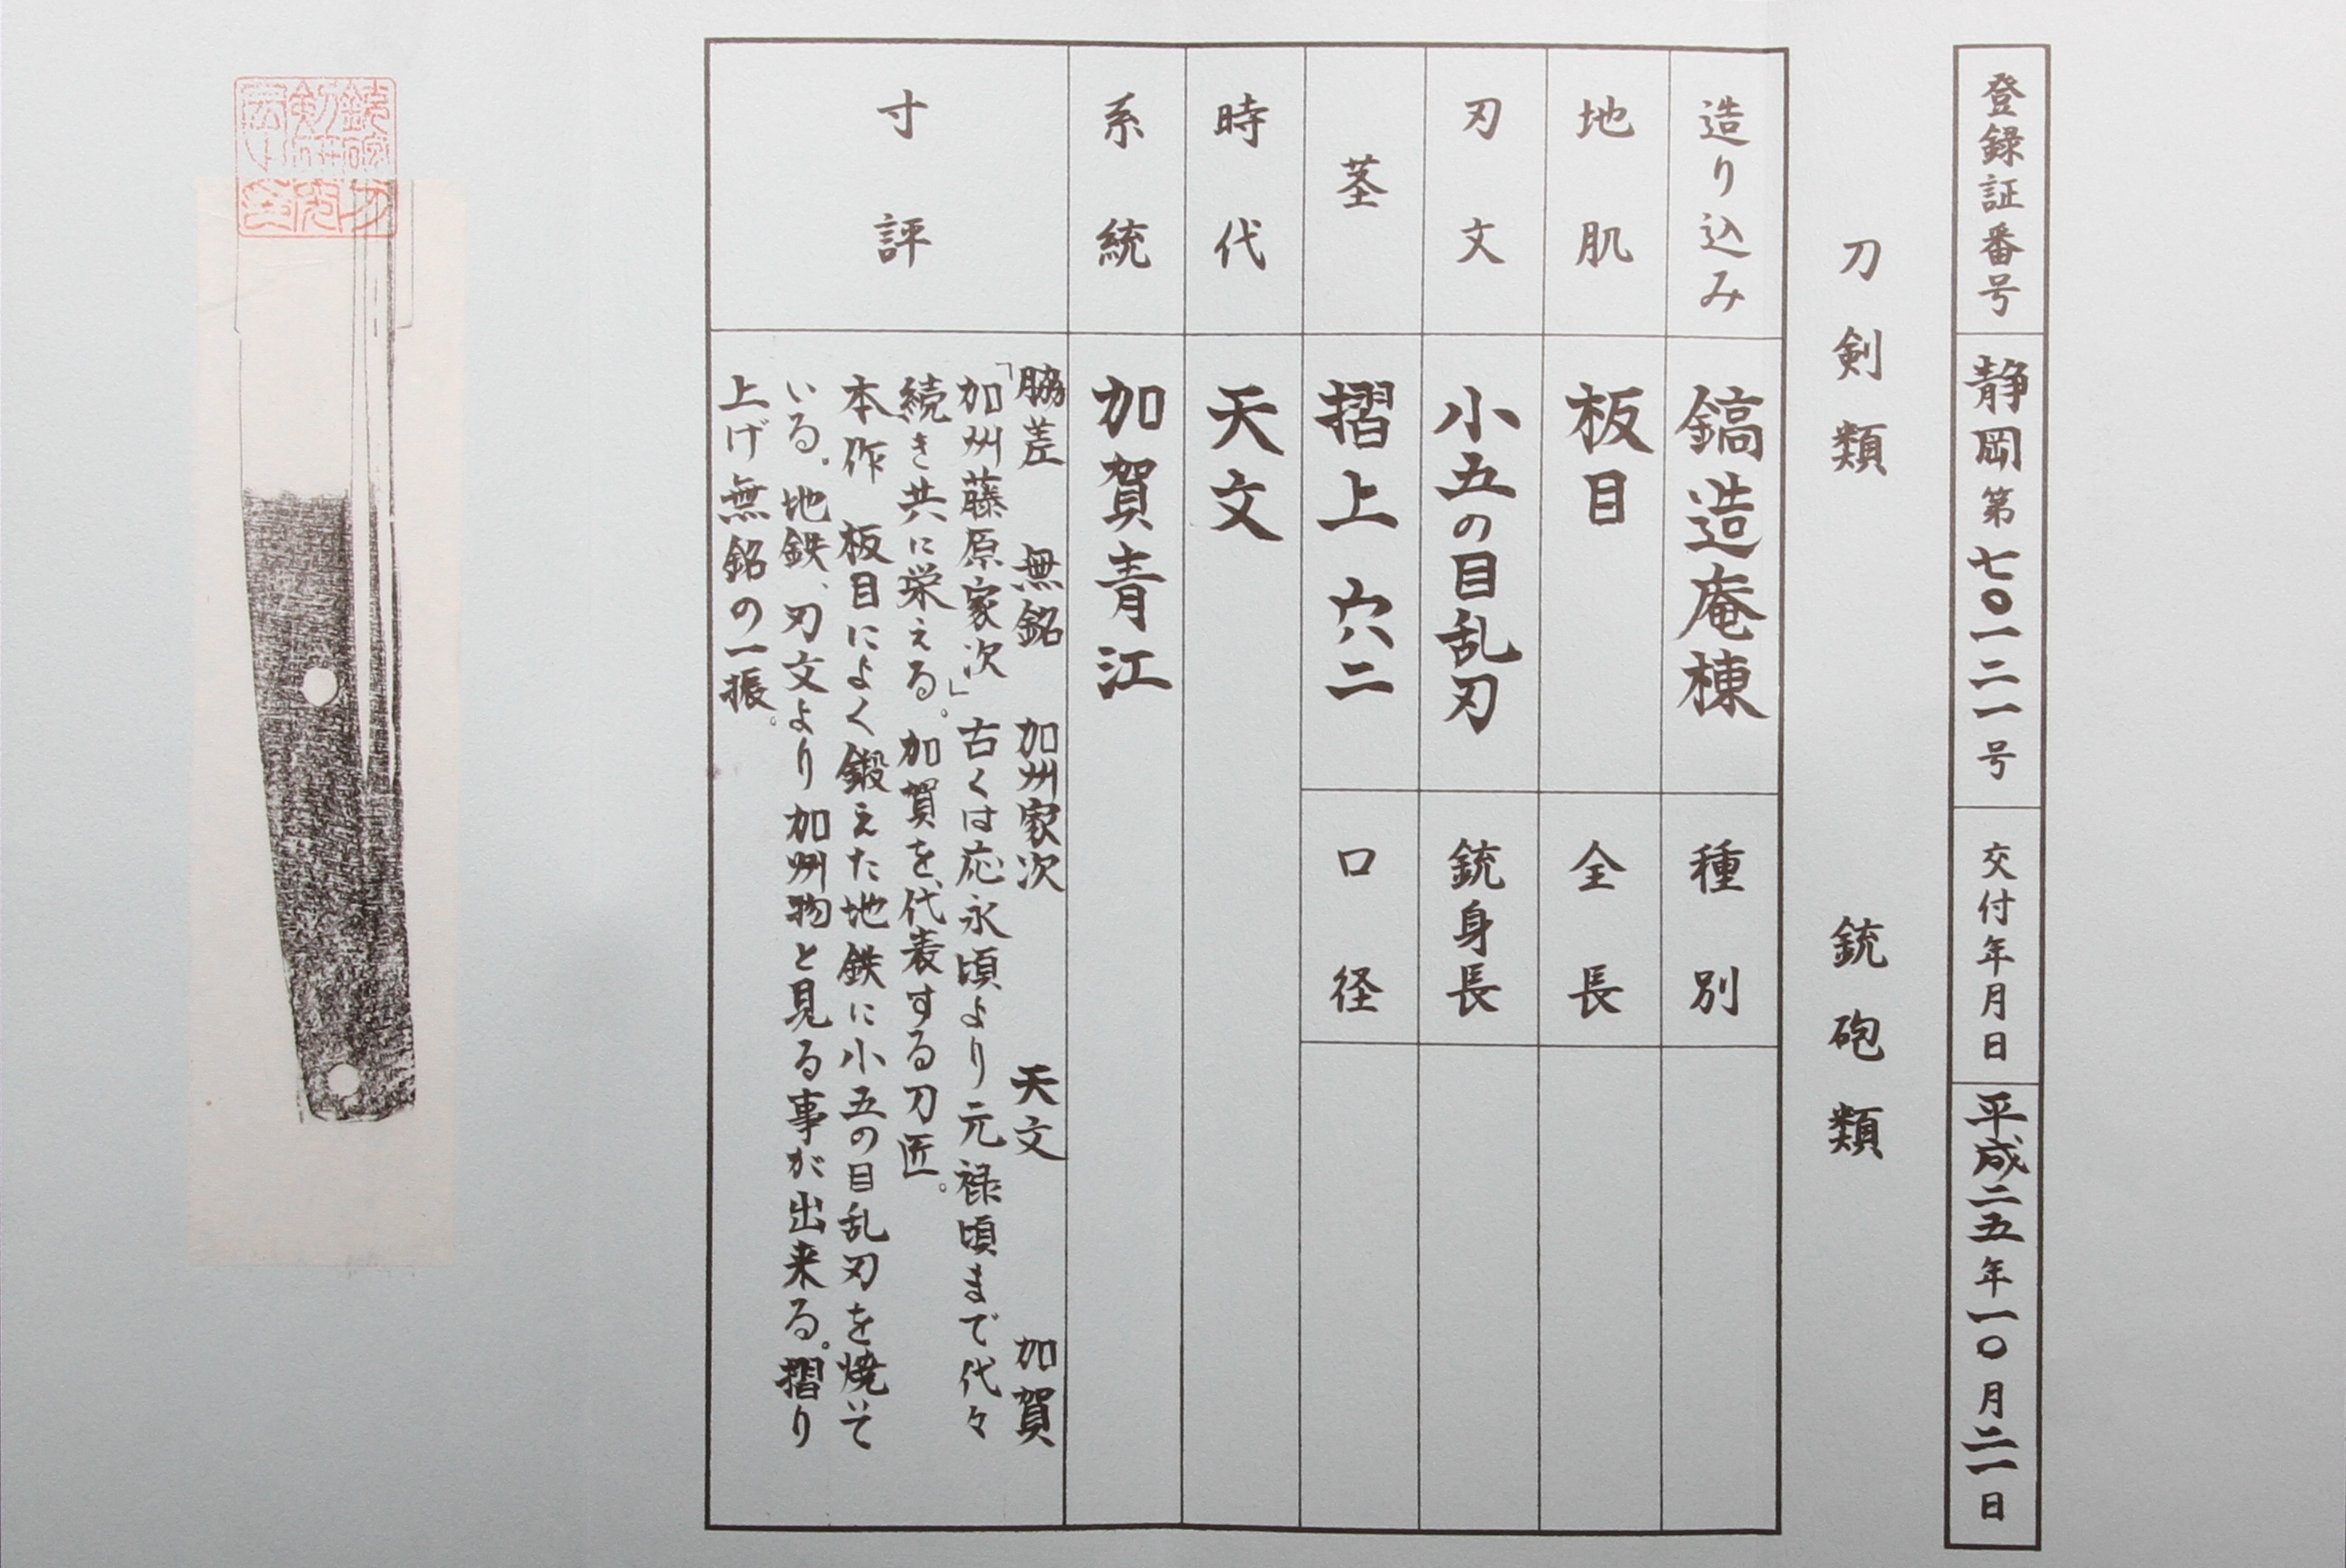 登録証番号 静岡第七〇一二一号 交付年月日 平成二五年一〇月二一日
刀剣類 銃砲類
造り込み 鎬造庵棟 種別
地肌 板目 全長
刃文 小五の目乱刃 銃身長
茎 摺上 穴二 口径
時代 天文
系統 加賀青江
寸評
脇差 無銘 加州家次 天文 加賀
「加州藤原家次」古くは応永頃より元禄頃まで代々
続き共に栄える。加賀を代表する刀匠。
本作 板目によく鍛えた地鉄に小五の目乱刃を焼いて
いる。地鉄、刃文より加州物と見る事が出来る。摺り
上げ無銘の一振。